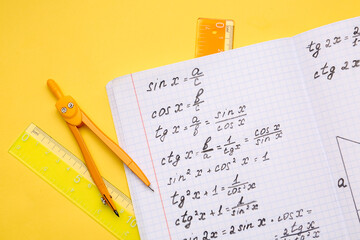 sin x = a/c
cos x = b/c
tg x = a/b = sin x/cos x
ctg x = b/a = 1/tgx = cos x/sin x
sin²x + cos²x = 1
tg²x + 1 = 1/cos²x
ctg²x + 1 = 1/sin²x
sin 2x = 2 sin x · cos x =
= 2tg x
tg 2x =
ctg 2x
a